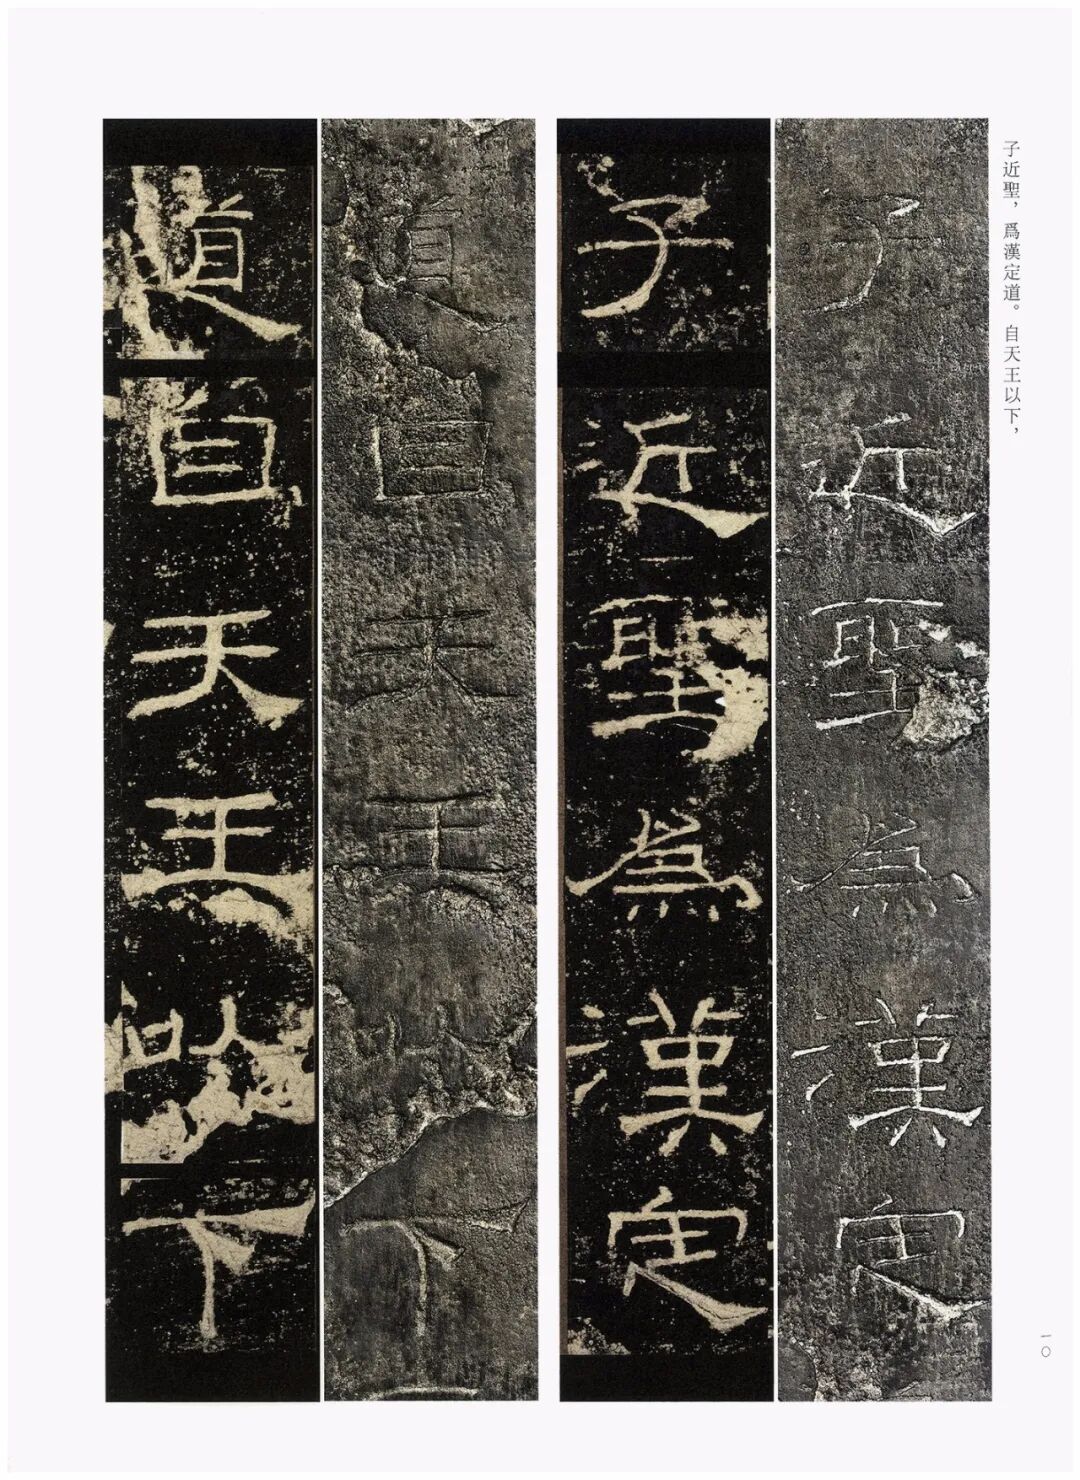 子近聖，爲漢定道。自天王以下，
子近聖爲漢定
子近聖爲漢定
道自天王以下
道自天王以下
一〇